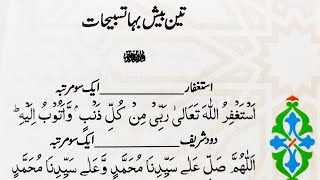 تین بیش بہا تسبیحات
﷽
استغفار ____________ ایک سو مرتبہ
اَسْتَغْفِرُ اللّٰهَ تَعَالٰی رَبِّیْ مِنْ کُلِّ ذَنْۢبٍ وَّاَتُوْبُ اِلَیْهِ ؕ
دود شریف ____________ ایک سو مرتبہ
اَللّٰهُمَّ صَلِّ عَلٰی سَیِّدِنَا مُحَمَّدٍ وَّعَلٰی سَیِّدِنَا مُحَمَّدٍ